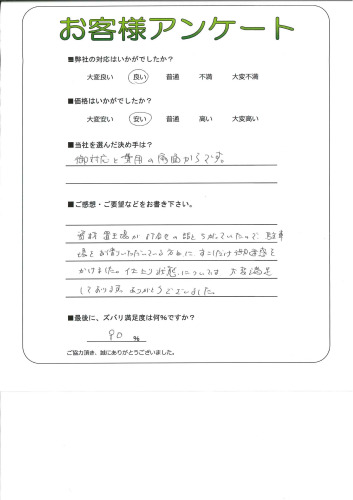 お客様アンケート
■弊社の対応はいかがでしたか?
大変良い 良い 普通 不満 大変不満
■価格はいかがでしたか?
大変安い 安い 普通 高い 大変高い
■当社を選んだ決め手は?
御対応と費用の両面からです。
■ご感想・ご要望などをお書き下さい。
資材置き場が の話とちがっていたので駐車
場をお借りいただいている方々に すこしだけ御迷惑を
かけました。仕上り状態については 大変満足
しております。ありがとうございました。
■最後に、ズバリ満足度は何%ですか?
90 %
ご協力頂き、誠にありがとうございました。